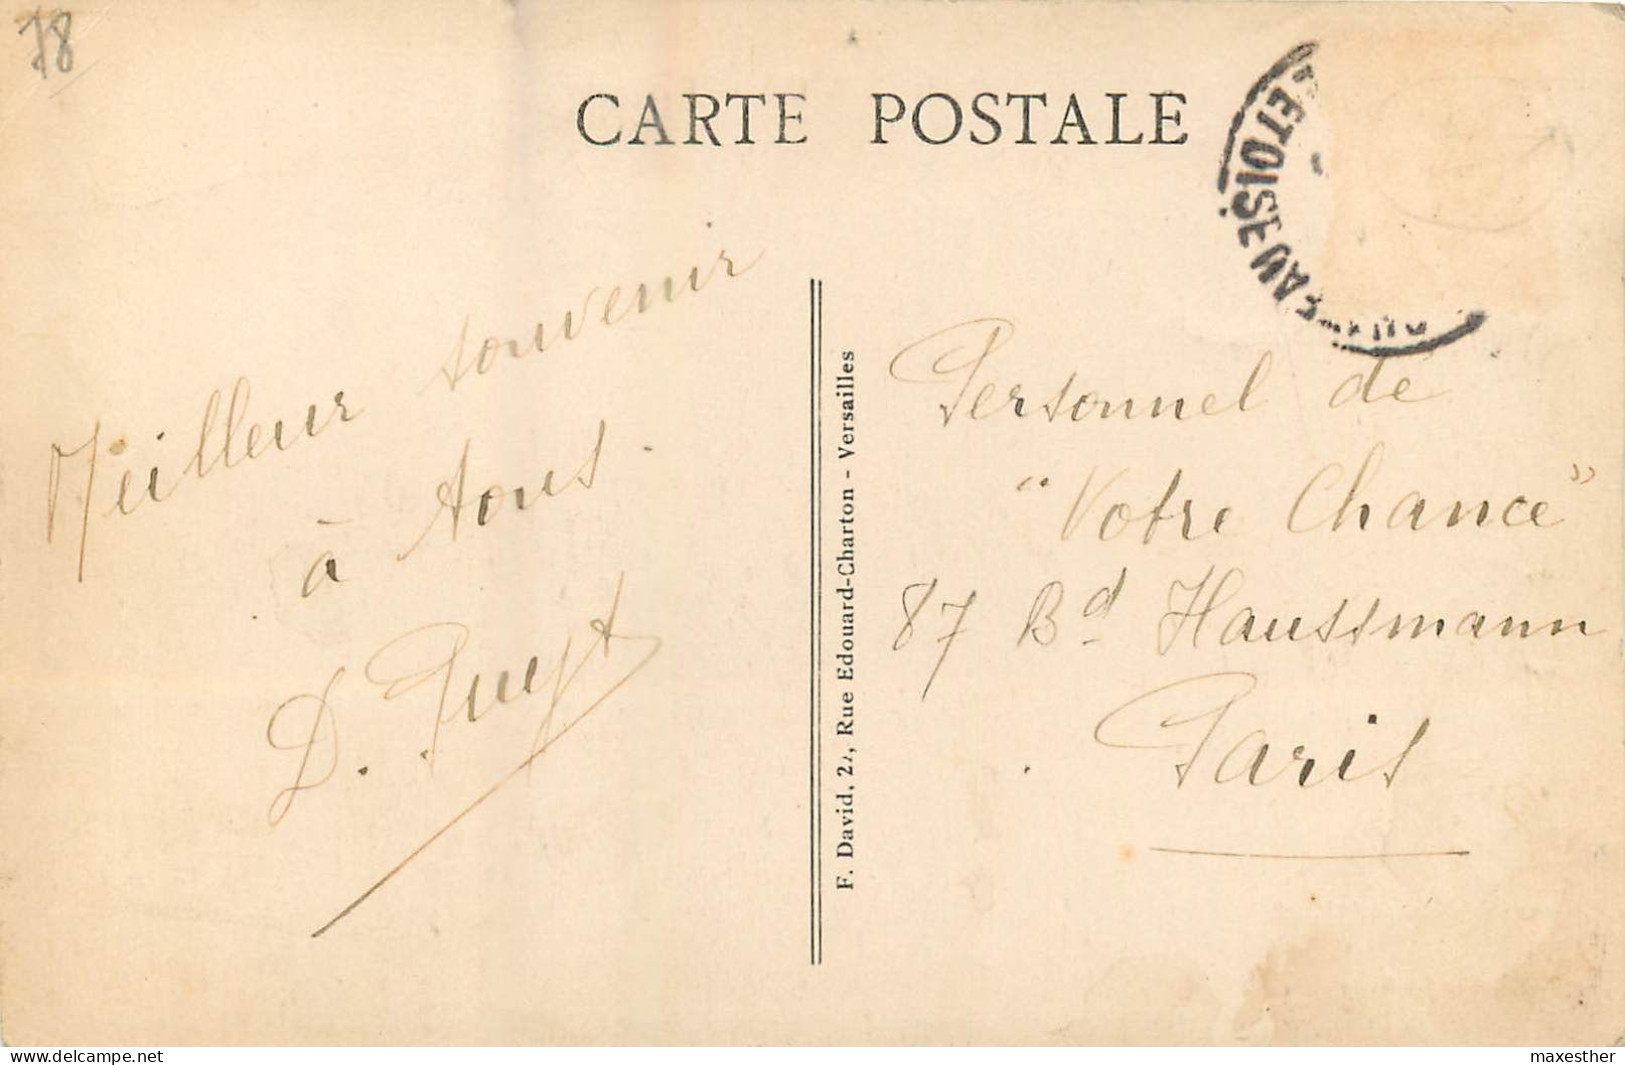 78
CARTE POSTALE
Meilleur souvenir
à tous.
F. David, 22, Rue Edouard-Charton - Versailles
Personnel de
"Votre Chance"
87 Bd Haussmann
Paris
www.delcampe.net
maxesther